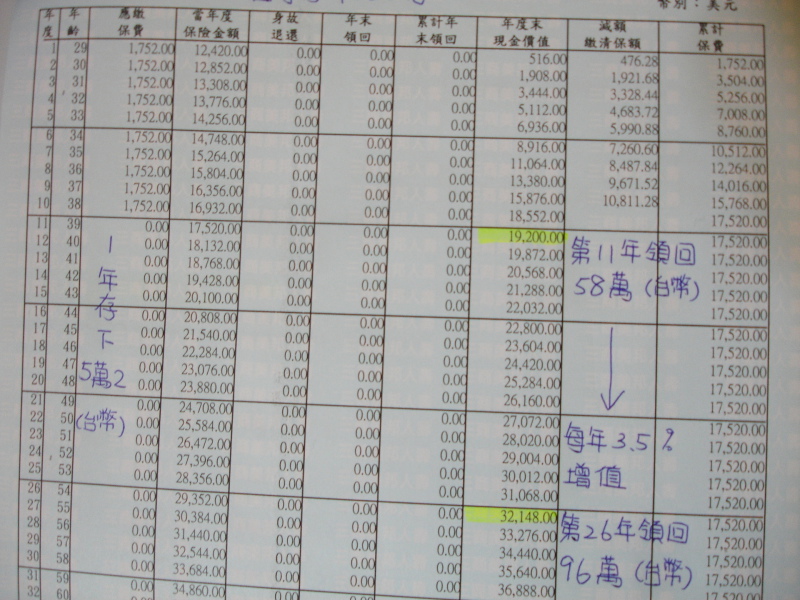 幣別：美元
年度 年齡 應繳保費 當年度保險金額 身故退還 年末領回 累計年末領回 年度末現金價值 減額繳清保額 累計保費
1 29 1,752.00 12,420.00 0.00 0.00 0.00 516.00 476.28 1,752.00
2 30 1,752.00 12,852.00 0.00 0.00 0.00 1,908.00 1,921.68 3,504.00
3 31 1,752.00 13,308.00 0.00 0.00 0.00 3,444.00 3,328.44 5,256.00
4 32 1,752.00 13,776.00 0.00 0.00 0.00 5,112.00 4,683.72 7,008.00
5 33 1,752.00 14,256.00 0.00 0.00 0.00 6,936.00 5,990.88 8,760.00
6 34 1,752.00 14,748.00 0.00 0.00 0.00 8,916.00 7,260.60 10,512.00
7 35 1,752.00 15,264.00 0.00 0.00 0.00 11,064.00 8,487.84 12,264.00
8 36 1,752.00 15,804.00 0.00 0.00 0.00 13,380.00 9,671.52 14,016.00
9 37 1,752.00 16,356.00 0.00 0.00 0.00 15,876.00 10,811.28 15,768.00
10 38 1,752.00 16,932.00 0.00 0.00 0.00 18,552.00 17,520.00
11 39 0.00 17,520.00 0.00 0.00 0.00 19,200.00 17,520.00
12 40 0.00 18,132.00 0.00 0.00 0.00 19,872.00 17,520.00
13 41 0.00 18,768.00 0.00 0.00 0.00 20,568.00 17,520.00
14 42 0.00 19,428.00 0.00 0.00 0.00 21,288.00 17,520.00
15 43 0.00 20,100.00 0.00 0.00 0.00 22,032.00 17,520.00
16 44 0.00 20,808.00 0.00 0.00 0.00 22,800.00 17,520.00
17 45 0.00 21,540.00 0.00 0.00 0.00 23,604.00 17,520.00
18 46 0.00 22,284.00 0.00 0.00 0.00 24,420.00 17,520.00
19 47 0.00 23,076.00 0.00 0.00 0.00 25,284.00 17,520.00
20 48 0.00 23,880.00 0.00 0.00 0.00 26,160.00 17,520.00
21 49 0.00 24,708.00 0.00 0.00 0.00 27,072.00 17,520.00
22 50 0.00 25,584.00 0.00 0.00 0.00 28,020.00 17,520.00
23 51 0.00 26,472.00 0.00 0.00 0.00 29,004.00 17,520.00
24 52 0.00 27,396.00 0.00 0.00 0.00 30,012.00 17,520.00
25 53 0.00 28,356.00 0.00 0.00 0.00 31,068.00 17,520.00
26 54 0.00 29,352.00 0.00 0.00 0.00 32,148.00 17,520.00
27 55 0.00 30,384.00 0.00 0.00 0.00 33,276.00 17,520.00
28 56 0.00 31,440.00 0.00 0.00 0.00 34,440.00 17,520.00
29 57 0.00 32,544.00 0.00 0.00 0.00 35,640.00 17,520.00
30 58 0.00 33,684.00 0.00 0.00 0.00 36,888.00 17,520.00
31 59 0.00 34,860.00 0.00 0.00 0.00
32 60
1年存下5萬2
(台幣)
第11年領回
58萬(台幣)
每年3.5%
增值
第26年領回
96萬(台幣)